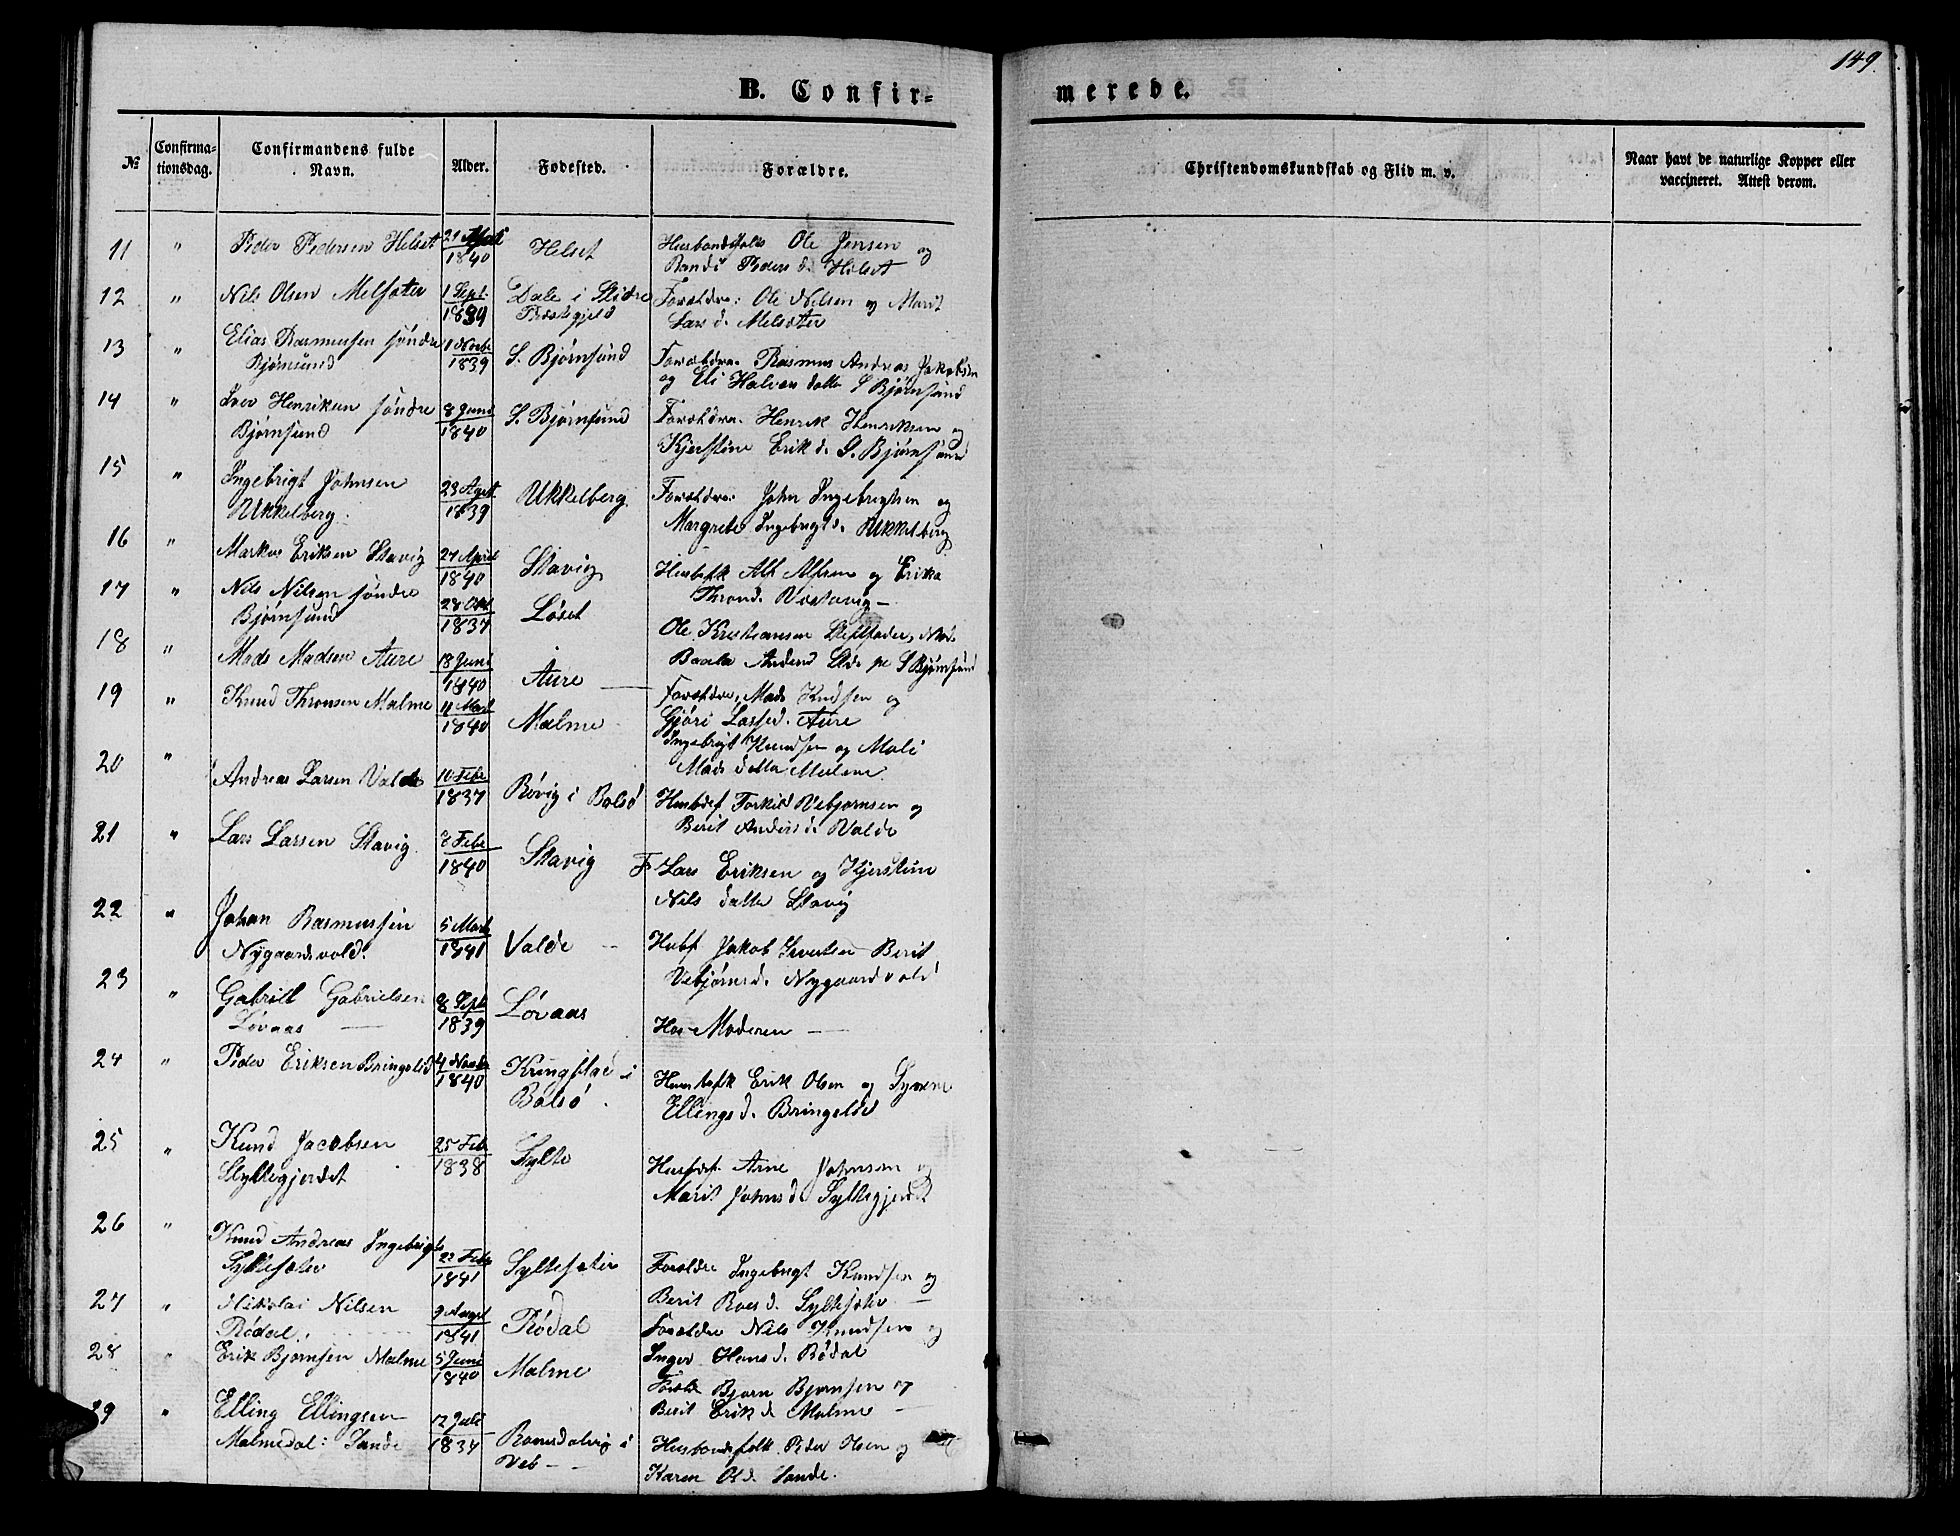 149.
B. Confir-
merede.
№
Confirma-
tionsdag.
Confirmandens fulde
Navn.
Alder.
Fødested.
Forældre.
Christendomskundskab og Flid m. v.
Naar havt de naturlige Kopper eller
vaccineret. Attest derom.
11 " Peder Pedersen Helset 1840 Helset Husbondsfolk Ole Jensen og
Peders d. Helset
12 " Nils Olsen Melsæter 1 Sept. 1839 Dale i Slidre Forældre: Ole Nilsen og Marit
Præstegjeld Lars d. Melsæter
13 " Elias Rasmussen søndre 1 Novbr 1839 S. Bjørnsund Forældre. Rasmus Andreas Jakobsen
Bjørnsund og Eli Halvor datter S Bjørnsund
14 " Iver Henriksen søndre 8 Juni 1840 S. Bjørnsund Forældre. Henrik Henriksen og
Bjørnsund Kjerstine Erik d. S. Bjørnsund
15 " Ingebrigt Johnsen 23 Agst 1839 Ukkelberg. Forældre: John Ingebrigtsen og
Ukkelberg. Margrete Ingebrigt d. Ukkelberg
16 " Markus Eriksen Stavig 27 April 1840 Stavig Husbfk Alf Alfsen og Erika
Thrond d.
17 " Nils Nilsen søndre 28 Okt 1837 Løset Ole Kristiansen Stiffader,
Bjørnsund S Bjørnsund
18 " Mads Madsen Aure 18 Juni 1840 Aure — Forældre, Mads Knudsen og
Gjøri Lasse d. Aure
19 " Knud Thronsen Malme 11 Mart 1840 Malme Ingebrigt Knudsen og Mali
Mads datter Malme.
20 " Andreas Larsen Valde 10 Febr 1837 Røvig i Bolsø Husbdsf Torkild Vebjørnsen og
Berit Anders d. Valde
21 " Lars Larsen Stavig. 7 Febr 1840 Stavig F. Lars Eriksen og Kjerstine
Nils datter Stavig
22 " Johan Rasmussen 5 Mart 1841 Valde — Husbf Jakob Ivertsen Berit
Nygaardsvold. Vebjørns d. Nygaardsvold
23 " Gabriel Gabrielsen 8 Sept 1839 Løvaas Hos Moderen —
Løvaas —
24 " Peder Eriksen Bringslid 4 Novbr 1840 Kringstad i Erik Olsen og Synne
Bolsø. Ellings d. Bringslid
25 " Knud Jacobsen 25 Feb 1838 Sylte Husbdsf. Arne Johnsen og
Syltegjerdet Marit Johns d. Syltegjerdet
26 " Knud Andreas Ingebrigts 22 Febr 1841 Syltesæter Forældre Ingebrigt Knudsen og
Syltesæter Berit Roes d. Syltesæter —
27 " Nikolai Nilsen 9 Augst 1841 Rødal Forældre Nils Knudsen og
Rødal. Inger Hans d. Rødal
28 " Erik Bjørnsen Malme 5 Juni 1840 Malme Foræld Bjørn Bjørnsen og
Berit Erik d. Malme —
29 " Elling Ellingsen 12 Juli 1837 Romsdalsvig i Husbondsfolk. Peder Olsen og
Malmedal: Sande Veb — Karen Ol d. Sande.